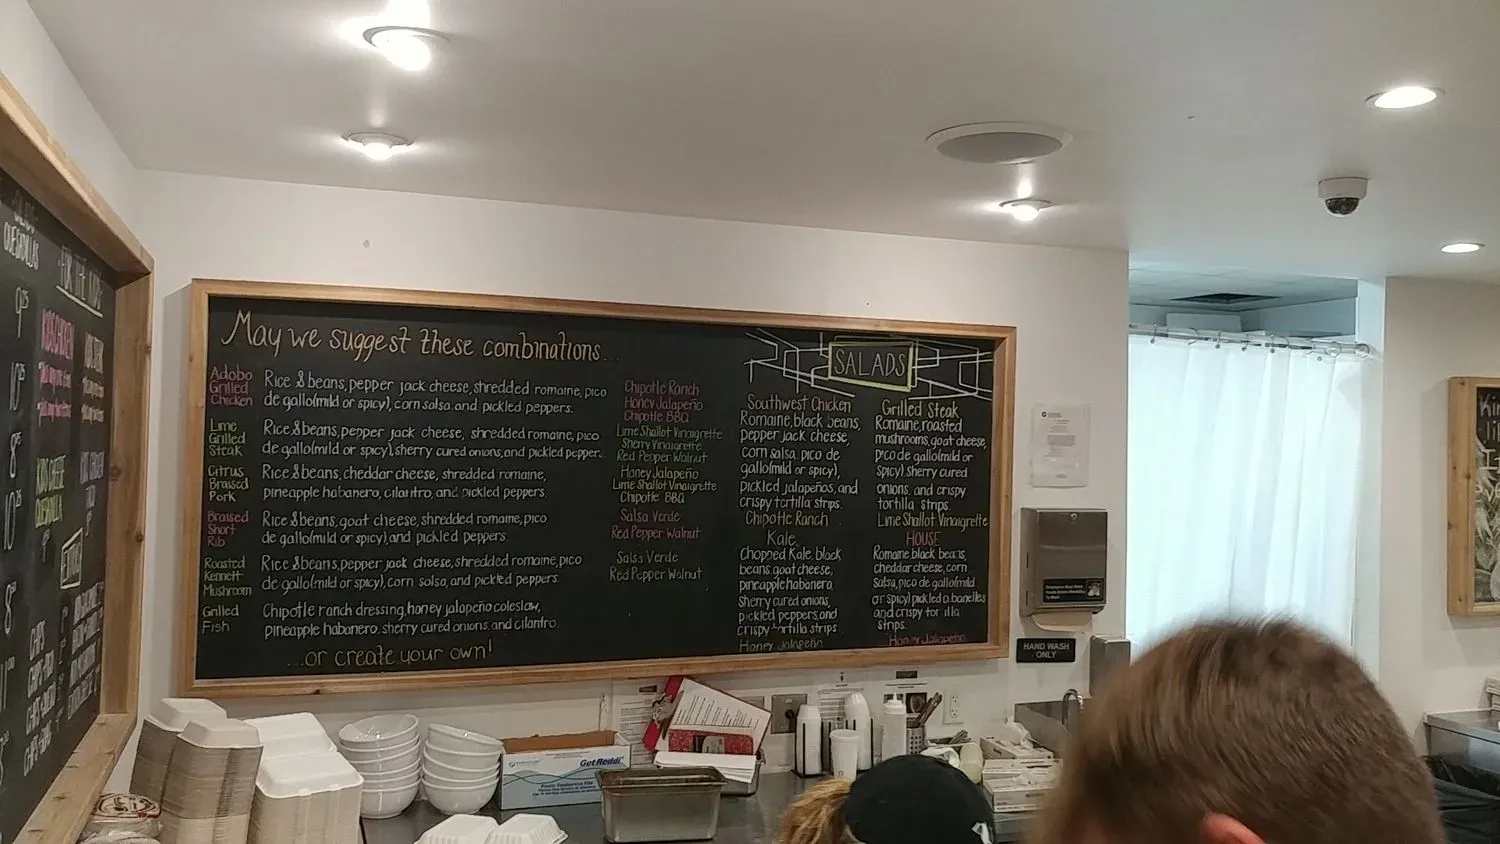 QUESADILLAS
9.25
10.25
8.25
10.25
FOR THE KIDS
KIDS CHICKEN
KIDS CHEESE
QUESADILLA
May we suggest these combinations...
Adobo
Grilled
Chicken
Rice & beans, pepper jack cheese, shredded romaine, pico
de gallo(mild or spicy), corn salsa and pickled peppers.
Chipotle Ranch
Honey Jalapeño
Chipotle BBQ
Lime
Grilled
Steak
Rice & beans, pepper jack cheese, shredded romaine, pico
de gallo(mild or spicy), sherry cured onions, and pickled peppers.
Lime Shallot Vinaigrette
Sherry Vinaigrette
Red Pepper Walnut
Citrus
Braised
Pork
Rice & beans, cheddar cheese, shredded romaine,
pineapple habanero, cilantro, and pickled peppers.
Honey Jalapeño
Lime Shallot Vinaigrette
Chipotle BBQ
Braised
Short
Rib
Rice & beans, goat cheese, shredded romaine, pico
de gallo(mild or spicy), and pickled peppers.
Salsa Verde
Red Pepper Walnut
Roasted
Kennett
Mushroom
Rice & beans, pepper jack cheese, shredded romaine, pico
de gallo(mild or spicy), corn salsa, and pickled peppers
Salsa Verde
Red Pepper Walnut
Grilled
Fish
Chipotle ranch dressing, honey jalapeño coleslaw,
pineapple habanero, sherry cured onions, and cilantro.
...or create your own!
SALADS
Southwest Chicken
Romaine, black beans,
pepper jack cheese,
corn salsa, pico de
gallo(mild or spicy),
pickled jalapeños, and
crispy tortilla strips.
Chipotle Ranch
Kale
Chopped Kale, black
beans, goat cheese,
pineapple habanero,
sherry cured onions,
pickled peppers, and
crispy tortilla strips
Honey Jalapeño
Grilled Steak
Romaine, roasted
mushrooms, goat cheese,
pico de gallo(mild or
spicy), sherry cured
onions, and crispy
tortilla strips.
Lime Shallot Vinaigrette
HOUSE
Romaine, black beans,
cheddar cheese, corn
salsa, pico de gallo(mild
or spicy)
and crispy tortilla
strips.
Honey Jalapeño
HAND WASH
ONLY
Get Reddi